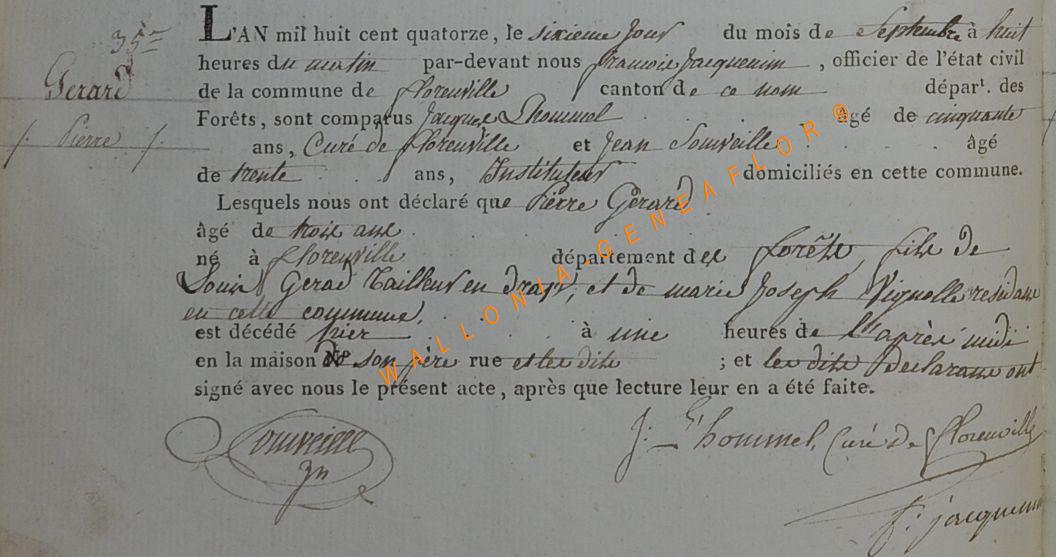 35me
L'AN mil huit cent quatorze, le sixieme jour du mois de Septembre à huit
Gerard
heures du matin par-devant nous francois Jacquemin, officier de l'état civil
de la commune de florenville canton de ce nom départt. des
Pierre
Forêts, sont comparus Jacques Lhommel âgé de cinquante
ans, Curé de florenville et Jean Souveille âgé
de trente ans, Instituteur domiciliés en cette commune.
Lesquels nous ont déclaré que Pierre Gérard
âgé de trois ans
né à florenville département des forêts, fils de
Louis Gerad Tailleur en drap, et de marie Joseph Vignolle residans
en cette commune,
est décédé hier à une heures de l'après midi
en la maison de son père rue ; et les dits Declarans ont
signé avec nous le présent acte, après que lecture leur en a été faite.
Souveille
J: L'hommel, Curé de florenville
f: jacquemin
WALLONIA-GENEAFLOR ®